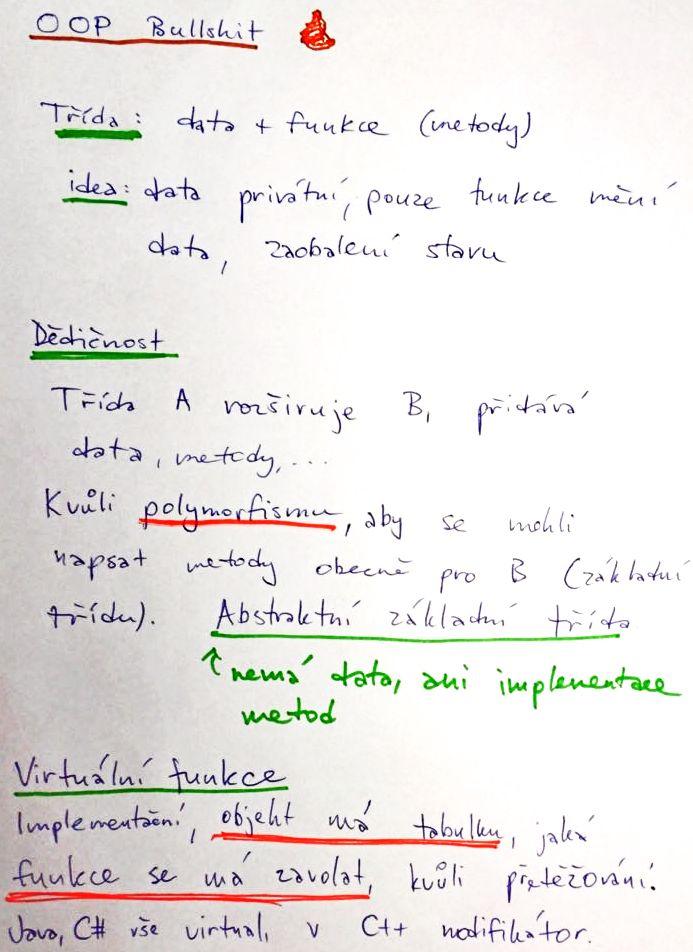 OOP Bullshit
Třída: data + funkce (metody)
idea: data privátní, pouze funkce mění
data, zaobalení stavu
Dědičnost
Třída A rozširuje B, přidává
data, metody,...
Kvůli polymorfismu, aby se mohli
napsat metody obecně pro B (základní
třídu). Abstraktní základní třída
↑ nemá data, ani implementace
metod
Virtuální funkce
Implementační, objekt má tabulku, jaká
funkce se má zavolat, kvůli přetěžování.
Java, C# vše virtual, v C++ modifikátor.